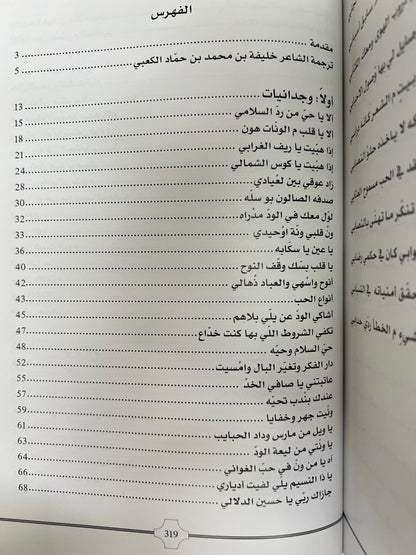 الفهرس
مقدمة 3
ترجمة الشاعر خليفة بن محمد بن حمّاد الكعبي 5
أولاً: وجدانيات 13
ألا يا حيّ من ردّ السلامي 15
ألا يا قلب م الونّات هون 18
إذا هبّيت يا ريف الغرابي 21
إذا هبّيت يا كوس الشمالي 24
زاد عوقي بين لعْيادي 28
صدفه الصالون بو سلّه 30
لوّل معك في الودّ مدراه 34
ونّ قلبي ونّة اوْحيدي 36
يا عين يا سكّابه 40
يا قلب بسّك وقف النوح 40
أنوح واسْهي والعباد ذْهالي 42
أنواع الحب 43
أشاكي الودّ عن يلّي بلاهم 45
تكفي الشروط اللّي بها كنت خدّاع 47
حيّ السلام وحيّه 48
دار الفكر وتغيّر البال وامْسيت 52
عاتبتني يا صافي الخدّ 55
عندك بنْدب تحيّه 57
ونّيت جهر وخفايا 59
يا ويل من مارس وداد الحبايب 61
يا ونّتي من ليعة الودّ 63
أديا من ونّ في حبّ الغواني 64
يا ذا النسيم يلّي لفيت أدياري 66
جازاك ربّي يا حسين الدلالي 68
319